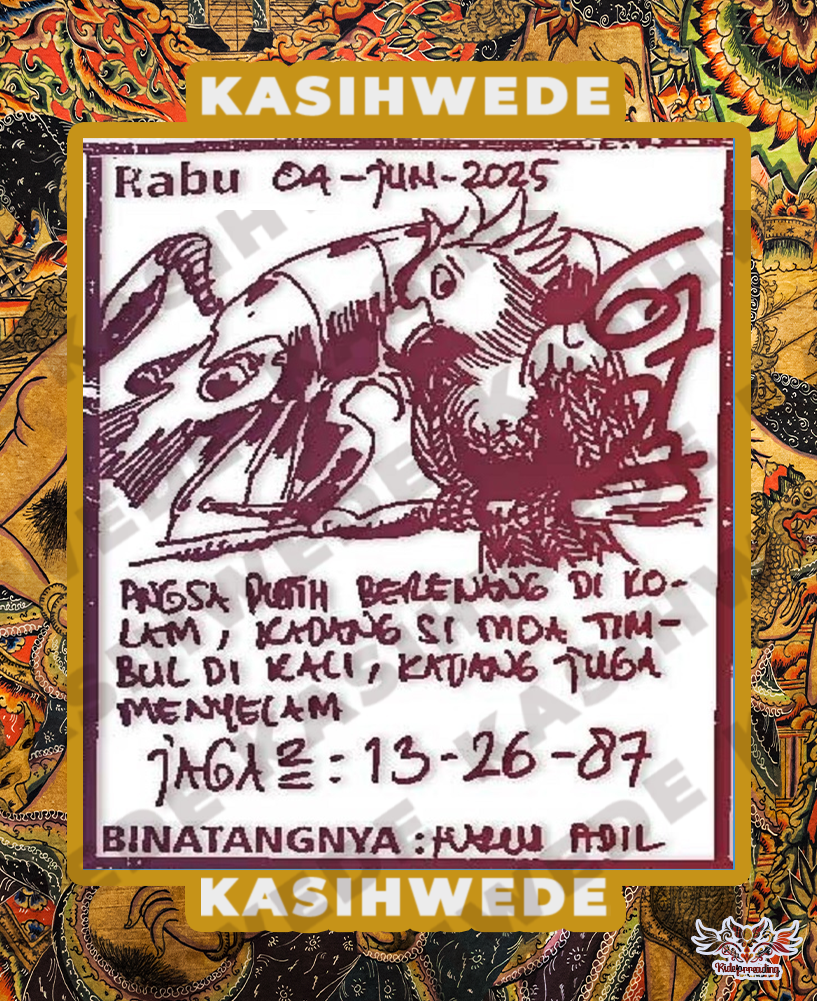 KASIHWEDE
Rabu 04-JUN-2025
67
ANGSA PUTIH BERENANG DI KO-
LAM, KADANG SI MOA TIM-
BUL DI KALI, KADANG JUGA
MENYELAM
JAGA2 = : 13-26-87
BINATANGNYA : ADIL
KASIHWEDE